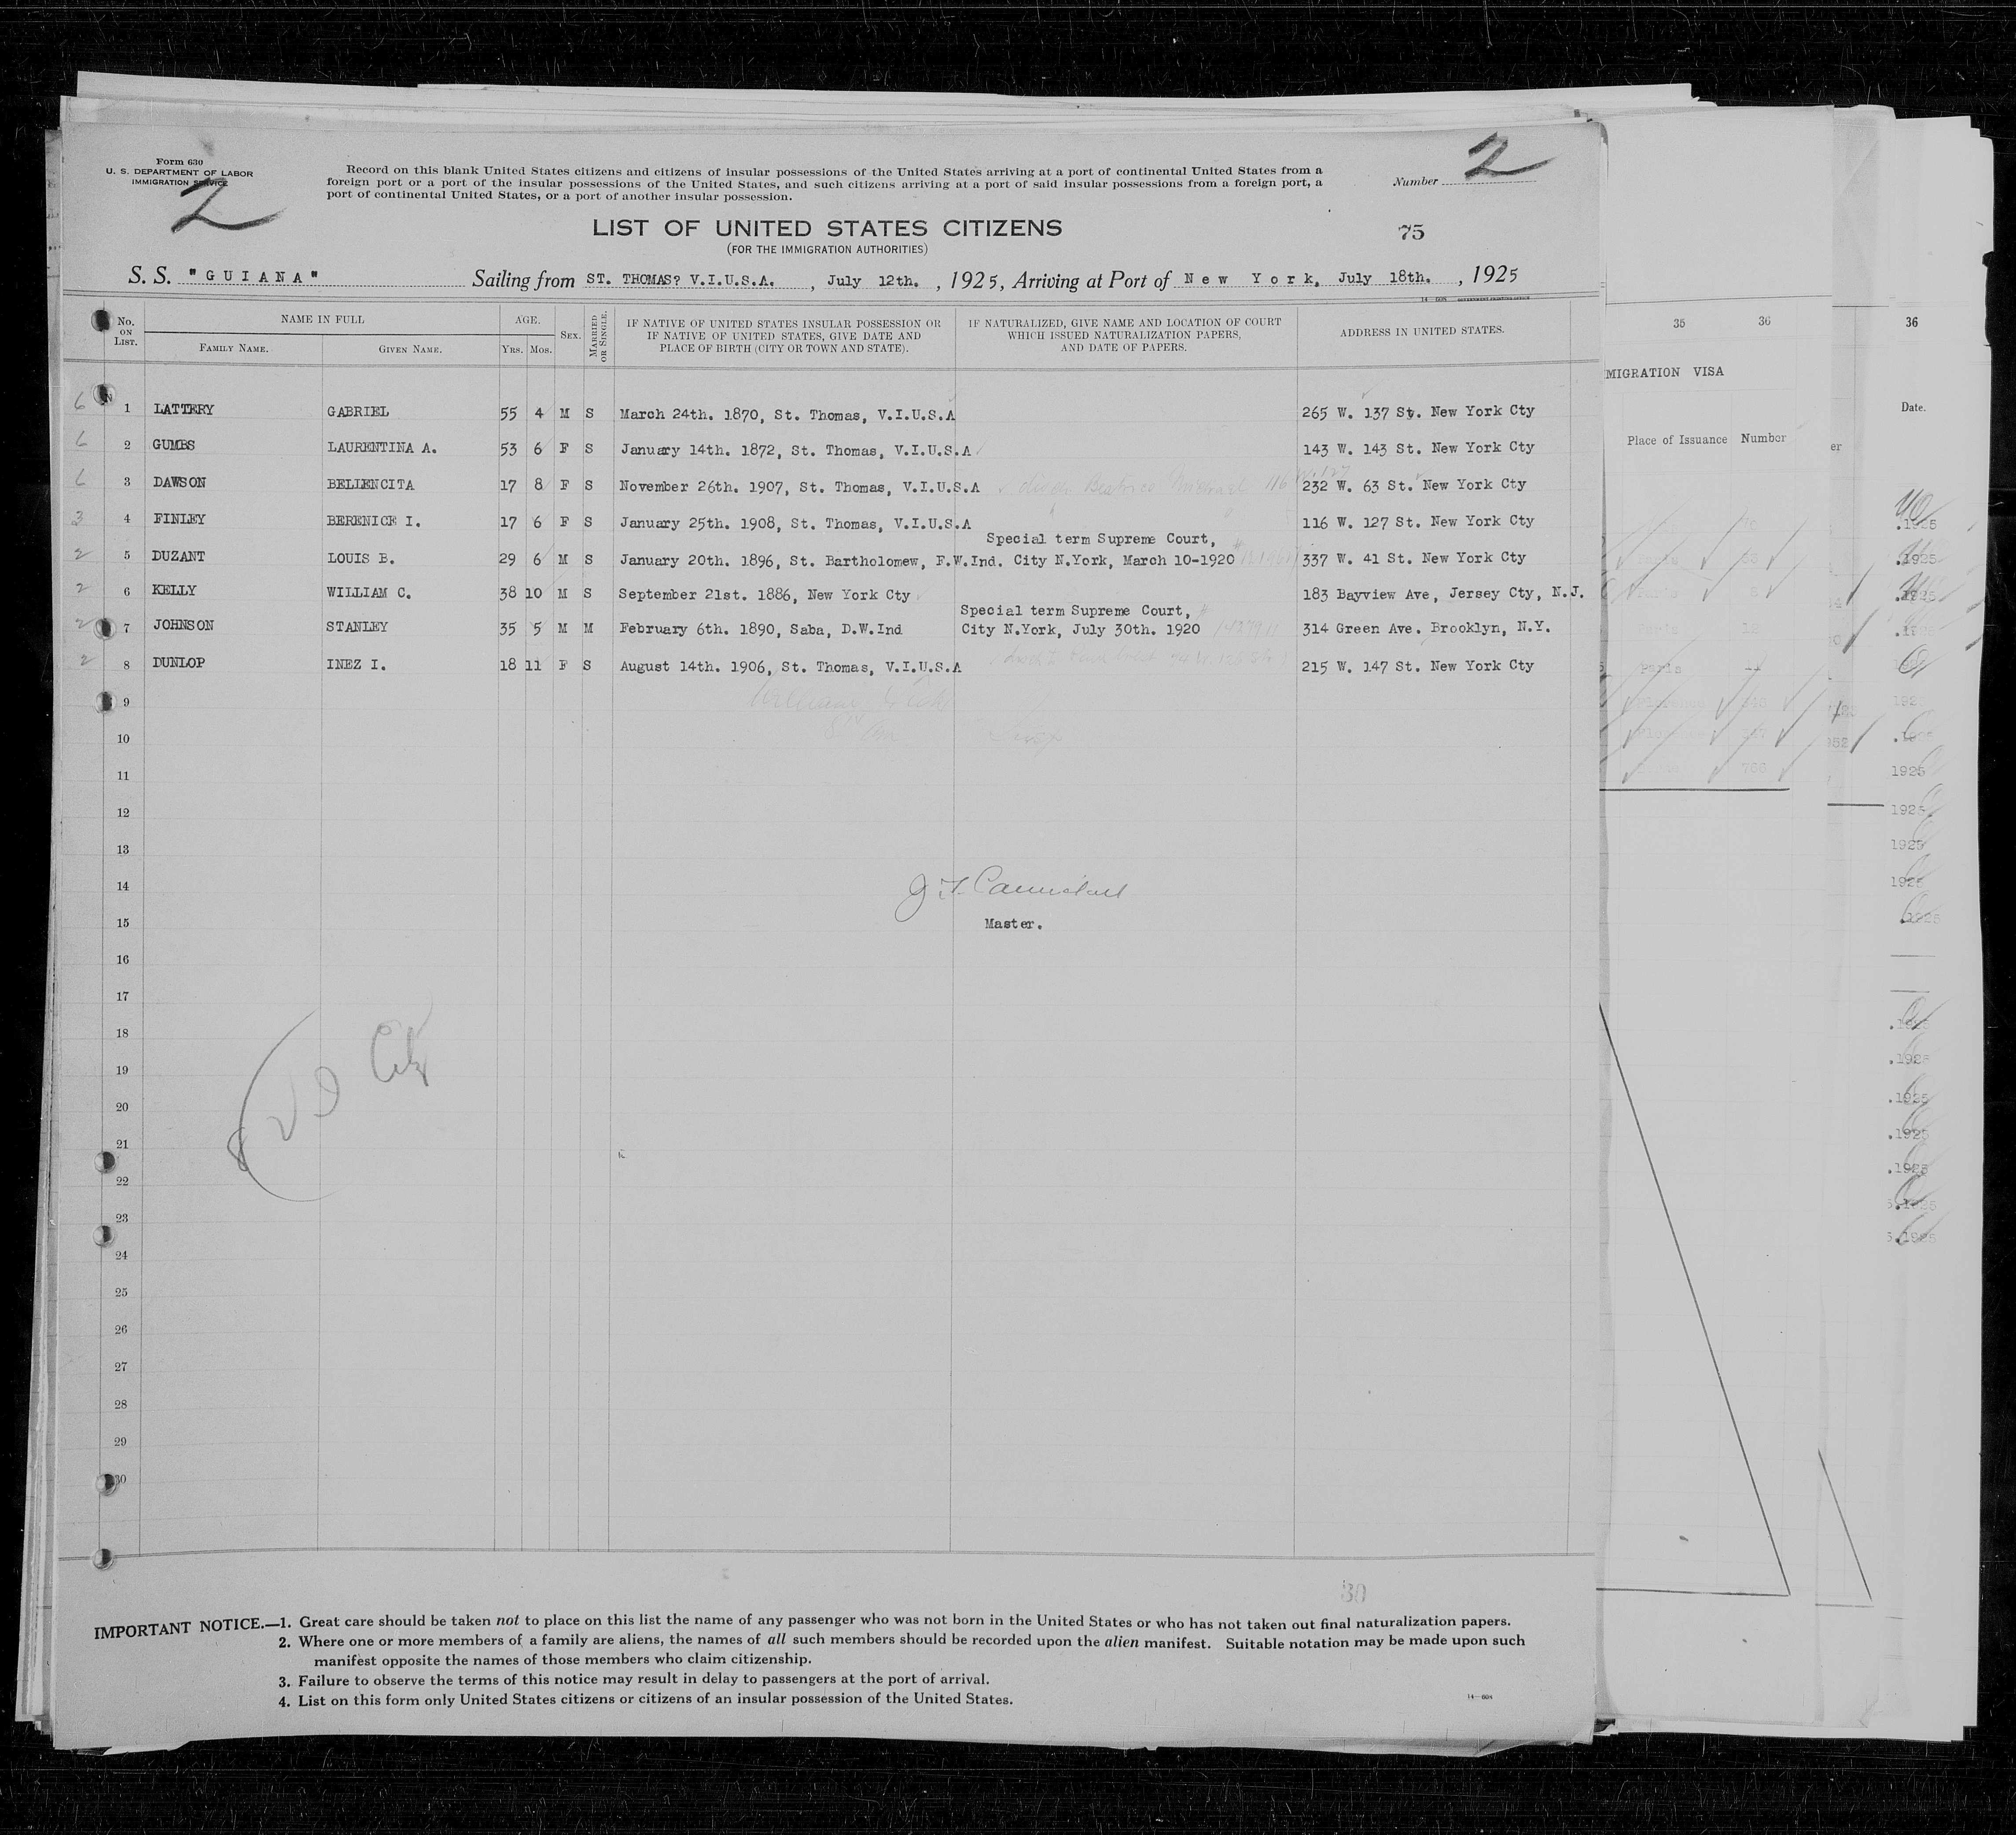 Form 630
U. S. DEPARTMENT OF LABOR
IMMIGRATION SERVICE
2
Record on this blank United States citizens and citizens of insular possessions of the United States arriving at a port of continental United States from a
foreign port or a port of the insular possessions of the United States, and such citizens arriving at a port of said insular possessions from a foreign port, a
port of continental United States, or a port of another insular possession.
Number 2
LIST OF UNITED STATES CITIZENS
(FOR THE IMMIGRATION AUTHORITIES)
75
S. S. "GUIANA" Sailing from ST. THOMAS? V.I.U.S.A. , July 12th. , 1925, Arriving at Port of New York, July 18th. , 1925
No. ON LIST. NAME IN FULL FAMILY NAME. GIVEN NAME. AGE. YRS. MOS. SEX. MARRIED OR SINGLE. IF NATIVE OF UNITED STATES INSULAR POSSESSION OR IF NATIVE OF UNITED STATES, GIVE DATE AND PLACE OF BIRTH (CITY OR TOWN AND STATE). IF NATURALIZED, GIVE NAME AND LOCATION OF COURT WHICH ISSUED NATURALIZATION PAPERS, AND DATE OF PAPERS. ADDRESS IN UNITED STATES.
6 1 LATTERY GABRIEL 55 4 M S March 24th. 1870, St. Thomas, V.I.U.S.A 265 W. 137 St. New York Cty
6 2 GUMBS LAURENTINA A. 53 6 F S January 14th. 1872, St. Thomas, V.I.U.S.A 143 W. 143 St. New York Cty
6 3 DAWSON BELLENCITA 17 8 F S November 26th. 1907, St. Thomas, V.I.U.S.A Beatrice 116 W. 127 232 W. 63 St. New York Cty
3 4 FINLEY BERENICE I. 17 6 F S January 25th. 1908, St. Thomas, V.I.U.S.A 116 W. 127 St. New York Cty
Special term Supreme Court,
2 5 DUZANT LOUIS B. 29 6 M S January 20th. 1896, St. Bartholomew, F.W.Ind. City N.York, March 10-1920 337 W. 41 St. New York Cty
2 6 KELLY WILLIAM C. 38 10 M S September 21st. 1886, New York Cty 183 Bayview Ave, Jersey Cty, N.J.
Special term Supreme Court,
2 7 JOHNSON STANLEY 35 5 M M February 6th. 1890, Saba, D.W.Ind City N.York, July 30th. 1920 314 Green Ave. Brooklyn, N.Y.
2 8 DUNLOP INEZ I. 18 11 F S August 14th. 1906, St. Thomas, V.I.U.S.A 215 W. 147 St. New York Cty
9
10
11
12
13
14
15 Master.
16
17
18
19
20
21
22
23
24
25
26
27
28
29
30
30
IMPORTANT NOTICE.—1. Great care should be taken not to place on this list the name of any passenger who was not born in the United States or who has not taken out final naturalization papers.
2. Where one or more members of a family are aliens, the names of all such members should be recorded upon the alien manifest. Suitable notation may be made upon such
manifest opposite the names of those members who claim citizenship.
3. Failure to observe the terms of this notice may result in delay to passengers at the port of arrival.
4. List on this form only United States citizens or citizens of an insular possession of the United States.
35 36
MIGRATION VISA
Place of Issuance Number
Paris
36
Date.
1925
1925
1925
1925
1925
1925
1925
1925
1925
1925
1925
1925
1925